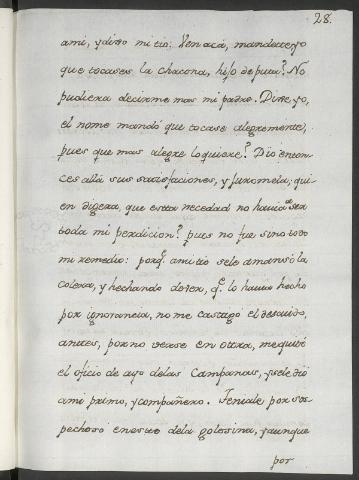 28.
ami, y dixo mi tio: Ven acá, mandoteyo
que tocases la chacona, hijo de puta? No
pudiera decirme mas mi padre. Dixe yo,
el nome mandó que tocase alegremente,
pues que mas alegre lo quiere? Dio enton-
ces allá sus satisfaciones, y juromela; qui-
en digera, que esta necedad no havia de ser
toda mi perdicion? pues no fue sino todo
mi remedio: porq.e ami tio sele amansó la
colera, y hechando de ver, q.e lo havia hecho
por ignorancia, no me castigó el descuido,
antes, por no verse en otra, me quitó
el oficio de ayo delas Campanas, y sele dió
ami primo, y compañero. Teniale por sos
pechoso en esto dela golosina, y aunque
por